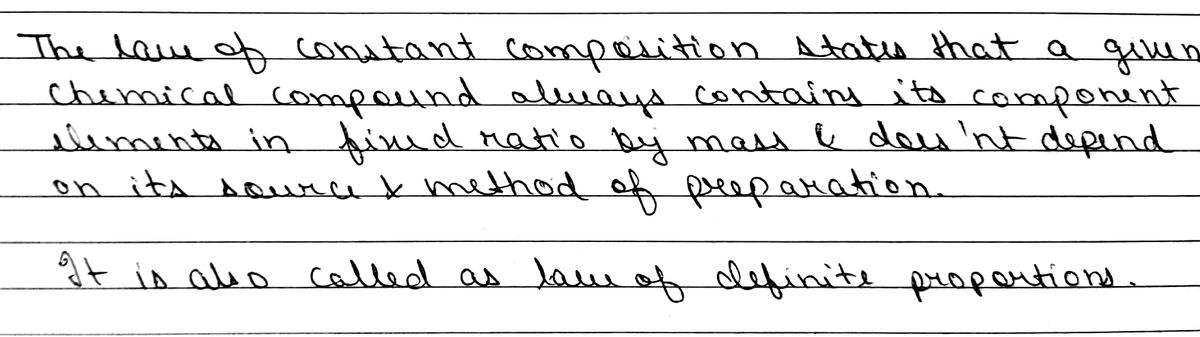 The law of constant composition states that a given
chemical compound always contains its component
elements in fixed ratio by mass & does'nt depend
on its source & method of preparation.
It is also called as law of definite proportions.